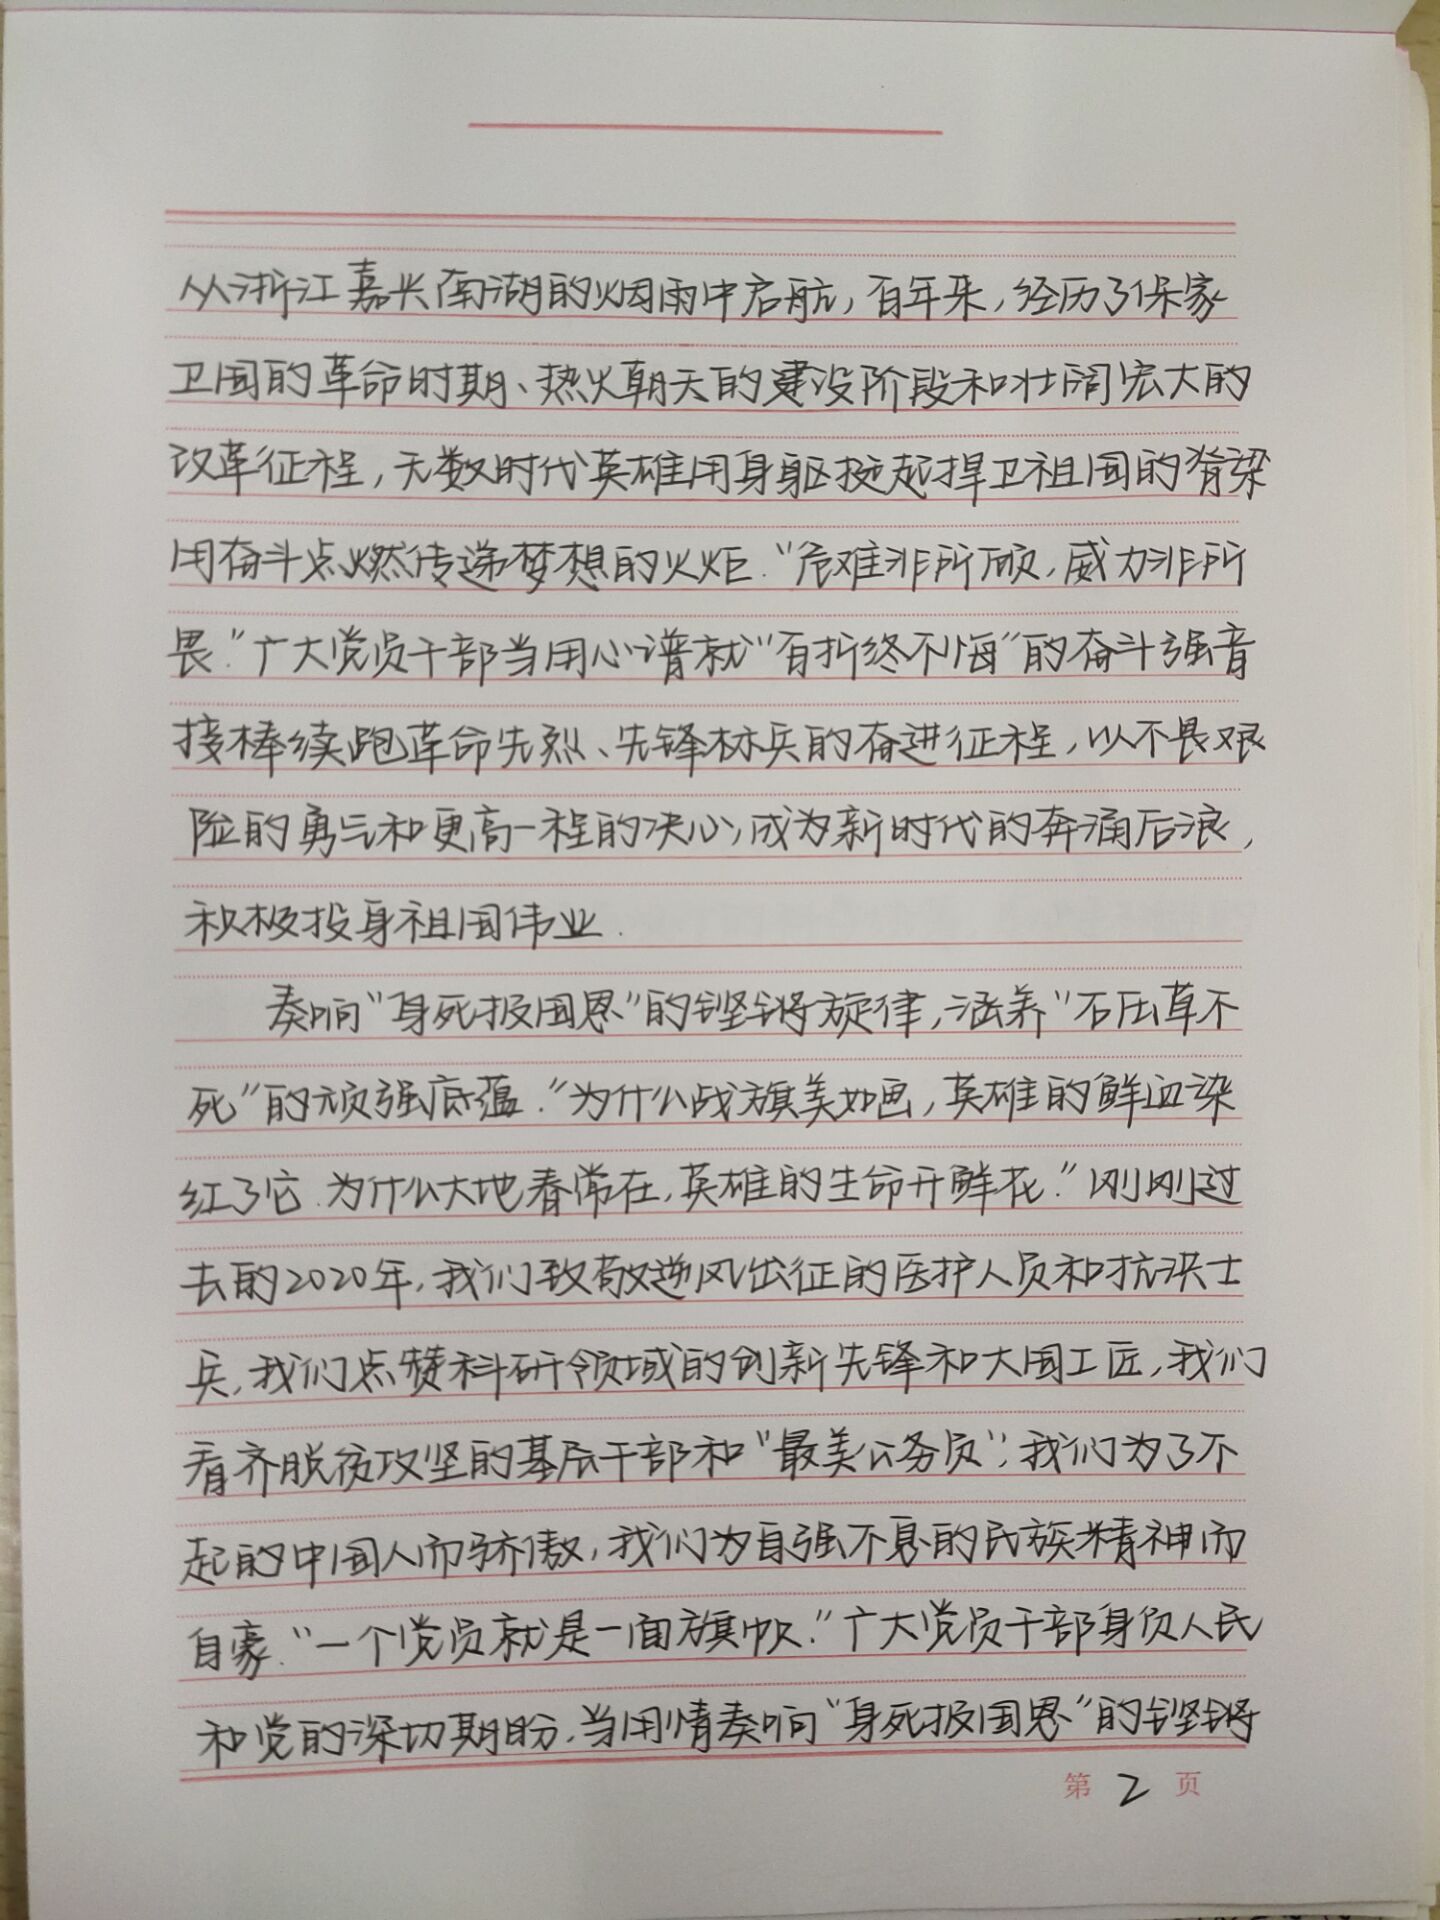 从浙江嘉兴南湖的烟雨中启航，百年来，经历了保家
卫国的革命时期、热火朝天的建设阶段和壮阔宏大的
改革征程，无数时代英雄用身躯挺起捍卫祖国的脊梁
用奋斗点燃传递梦想的火炬.“危难非所顾，威力非所
畏.”广大党员干部当用心谱就“百折终不悔”的奋斗强音
接棒续跑革命先烈、先锋标兵的奋进征程，以不畏艰
险的勇气和更高一程的决心，成为新时代的奔涌后浪，
积极投身祖国伟业.
奏响“身死报国恩”的铿锵旋律，涵养“石压草不
死”的顽强底蕴.“为什么战旗美如画，英雄的鲜血染
红了它.为什么大地春常在，英雄的生命开鲜花.”刚刚过
去的2020年，我们致敬逆风出征的医护人员和抗洪士
兵，我们点赞科研领域的创新先锋和大国工匠，我们
看齐脱贫攻坚的基层干部和“最美公务员”；我们为了不
起的中国人而骄傲，我们为自强不息的民族精神而
自豪.“一个党员就是一面旗帜.”广大党员干部身负人民
和党的深切期盼，当用情奏响“身死报国恩”的铿锵
第 2 页